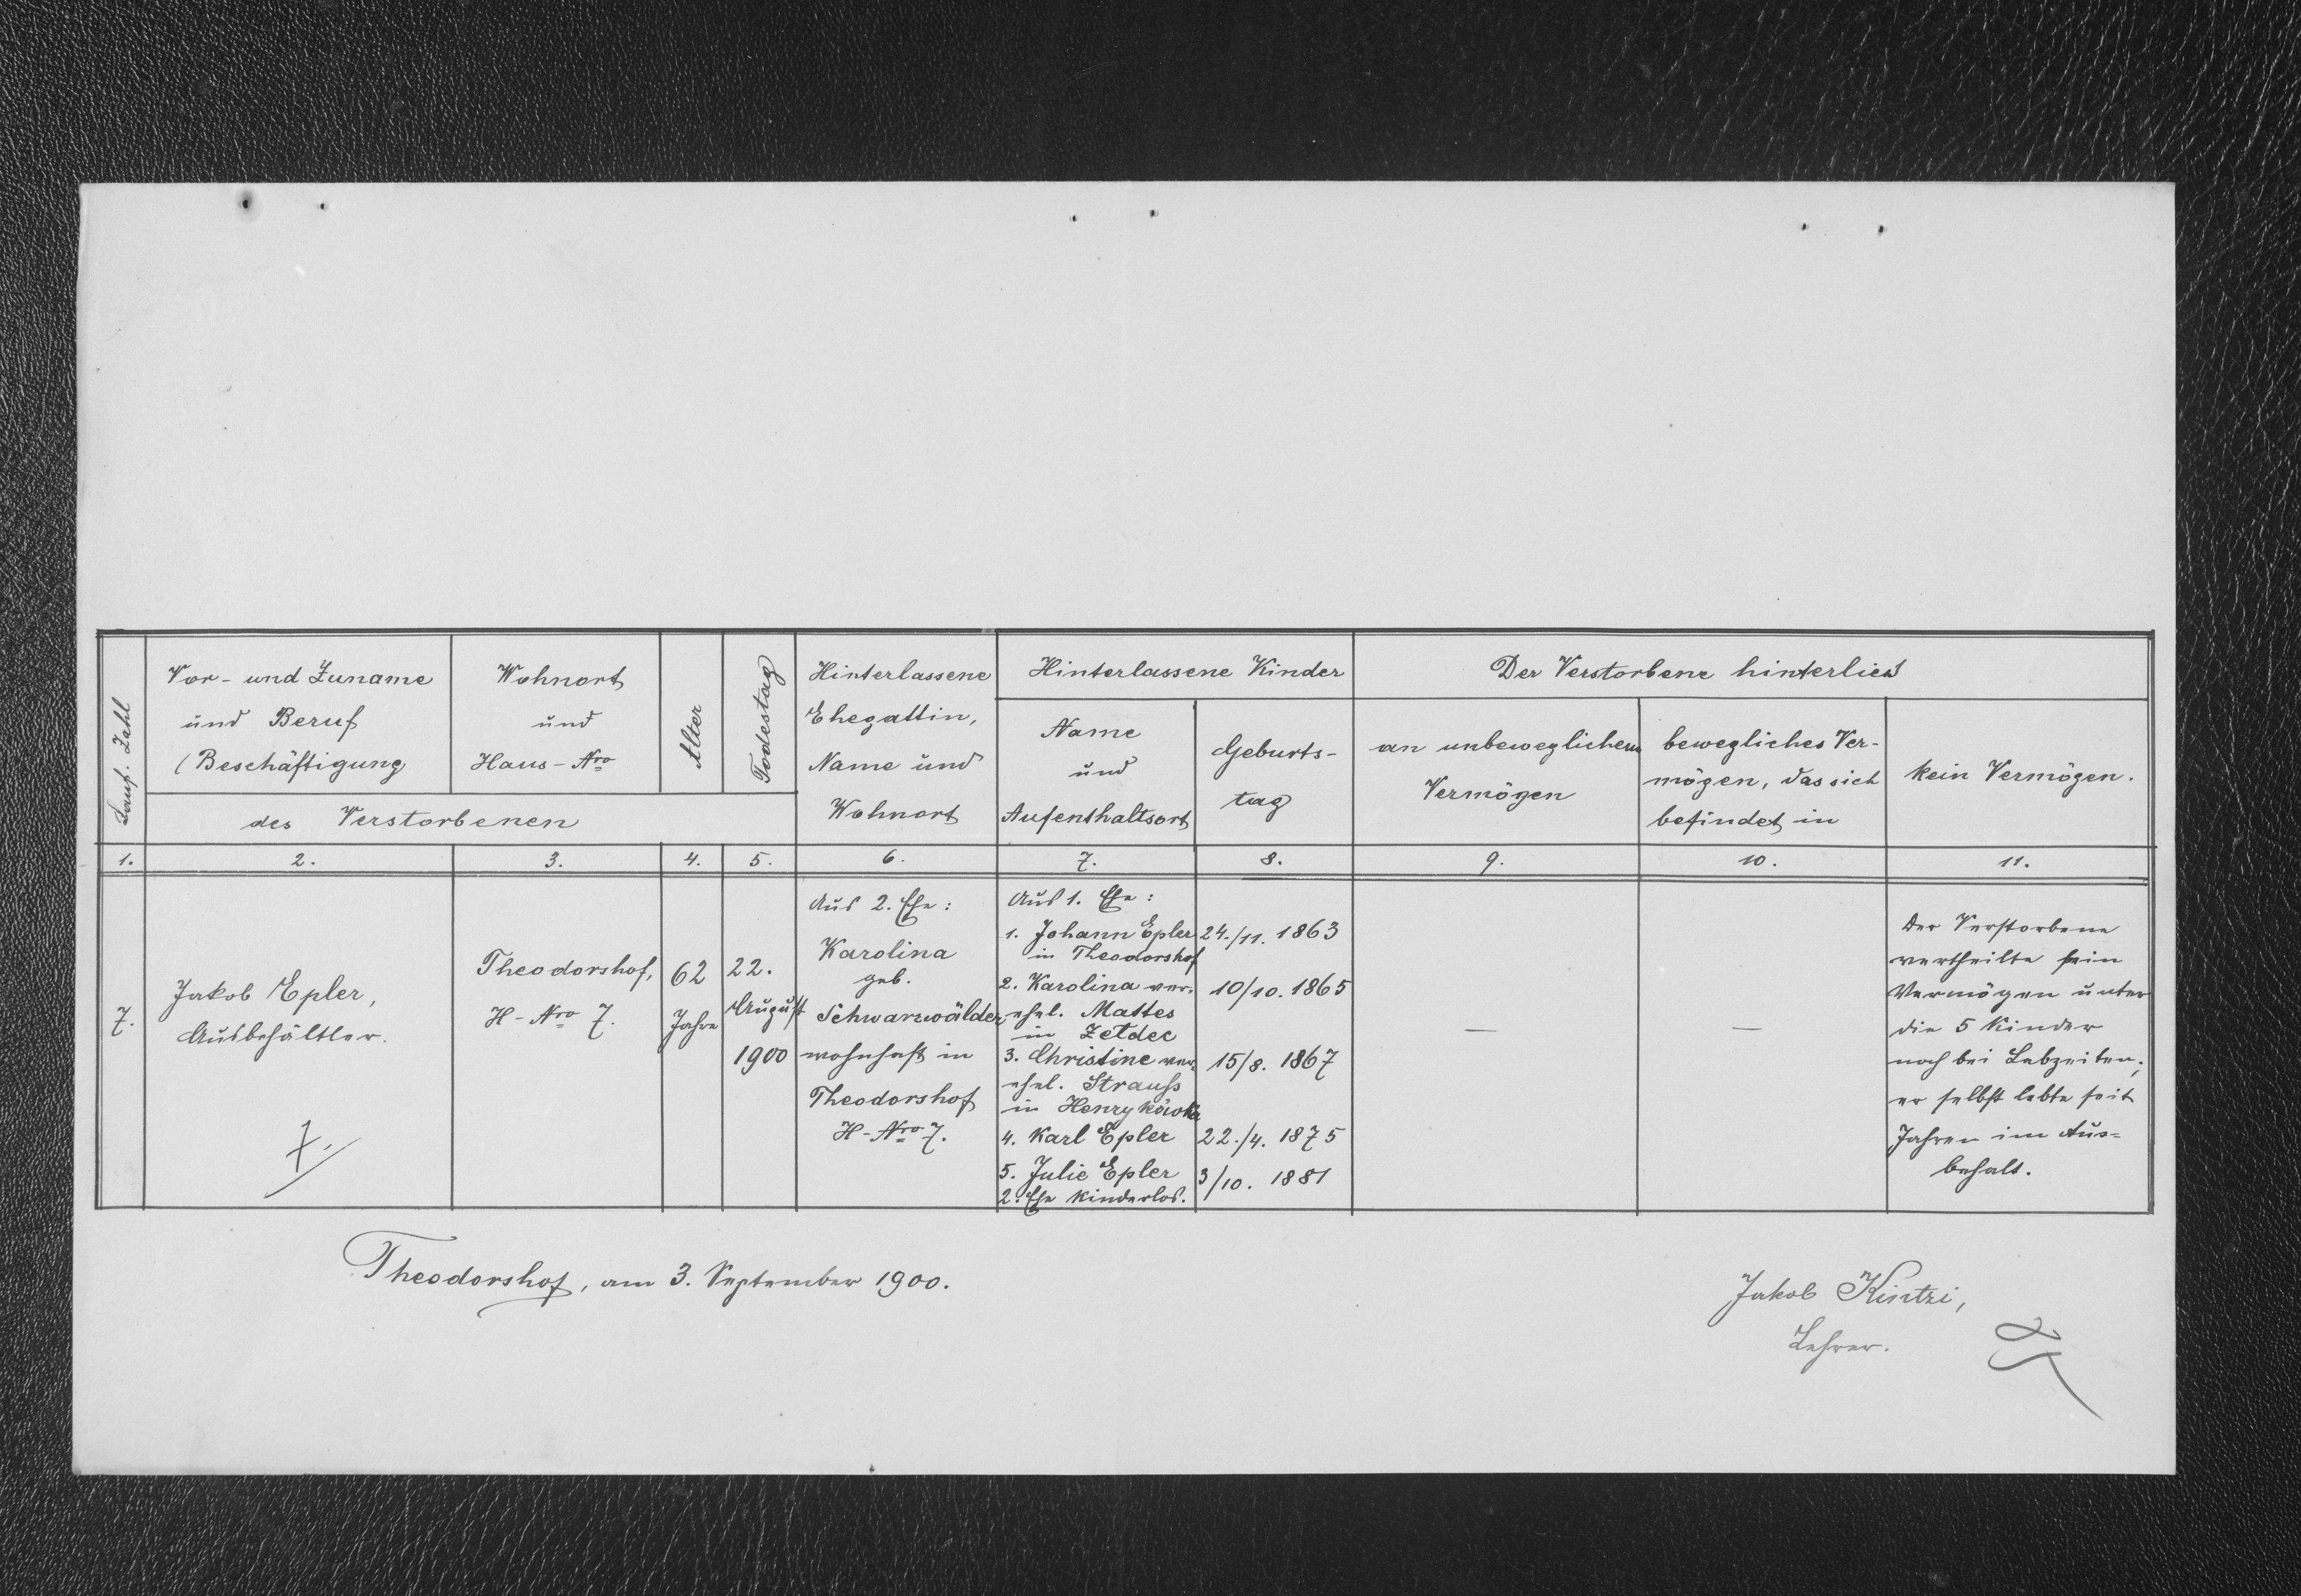 Lauf. Zahl
Vor- und Zuname
und Beruf
(Beschäftigung
Wohnort
und
Haus-Nro
des Verstorbenen
Alter
Todestag
Hinterlassene
Ehegattin,
Name und
Wohnort
Hinterlassene Kinder
Name
und
Aufenthaltsort
Geburts-
tag
Der Verstorbene hinterliess
an unbeweglichem
Vermögen
bewegliches Ver-
mögen, das sich
befindet in
kein Vermögen.
1. 2. 3. 4. 5. 6. 7. 8. 9. 10. 11.
7.
Jakob Epler,
Ausbehältler.
Theodorshof,
H-Nro 7.
62
Jahre
22.
August
1900
Aus 2. Ehe:
Karolina
geb.
Schwarzwälder,
wohnhaft in
Theodorshof
H-Nro 7.
Aus 1. Ehe:
1. Johann Epler 24./11. 1863
in Theodorshof
2. Karolina ver- 10/10. 1865
ehel. Mattes
in Zeldec
3. Christine ver- 15/8. 1867
ehel. Strauss
in Henrykówka
4. Karl Epler 22./4. 1875
5. Julie Epler 3/10. 1881
2. Ehe kinderlos.
—
—
Der Verstorbene
vertheilte sein
Vermögen unter
die 5 Kinder
noch bei Lebzeiten;
er selbst lebte seit
Jahren im Aus-
behalt.
Theodorshof, am 3. September 1900.
Jakob Kintzi,
Lehrer.